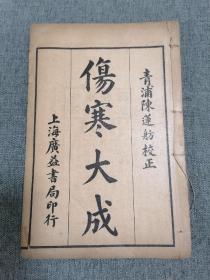 青浦陳蓮舫校正
傷寒大成
上海廣益書局印行